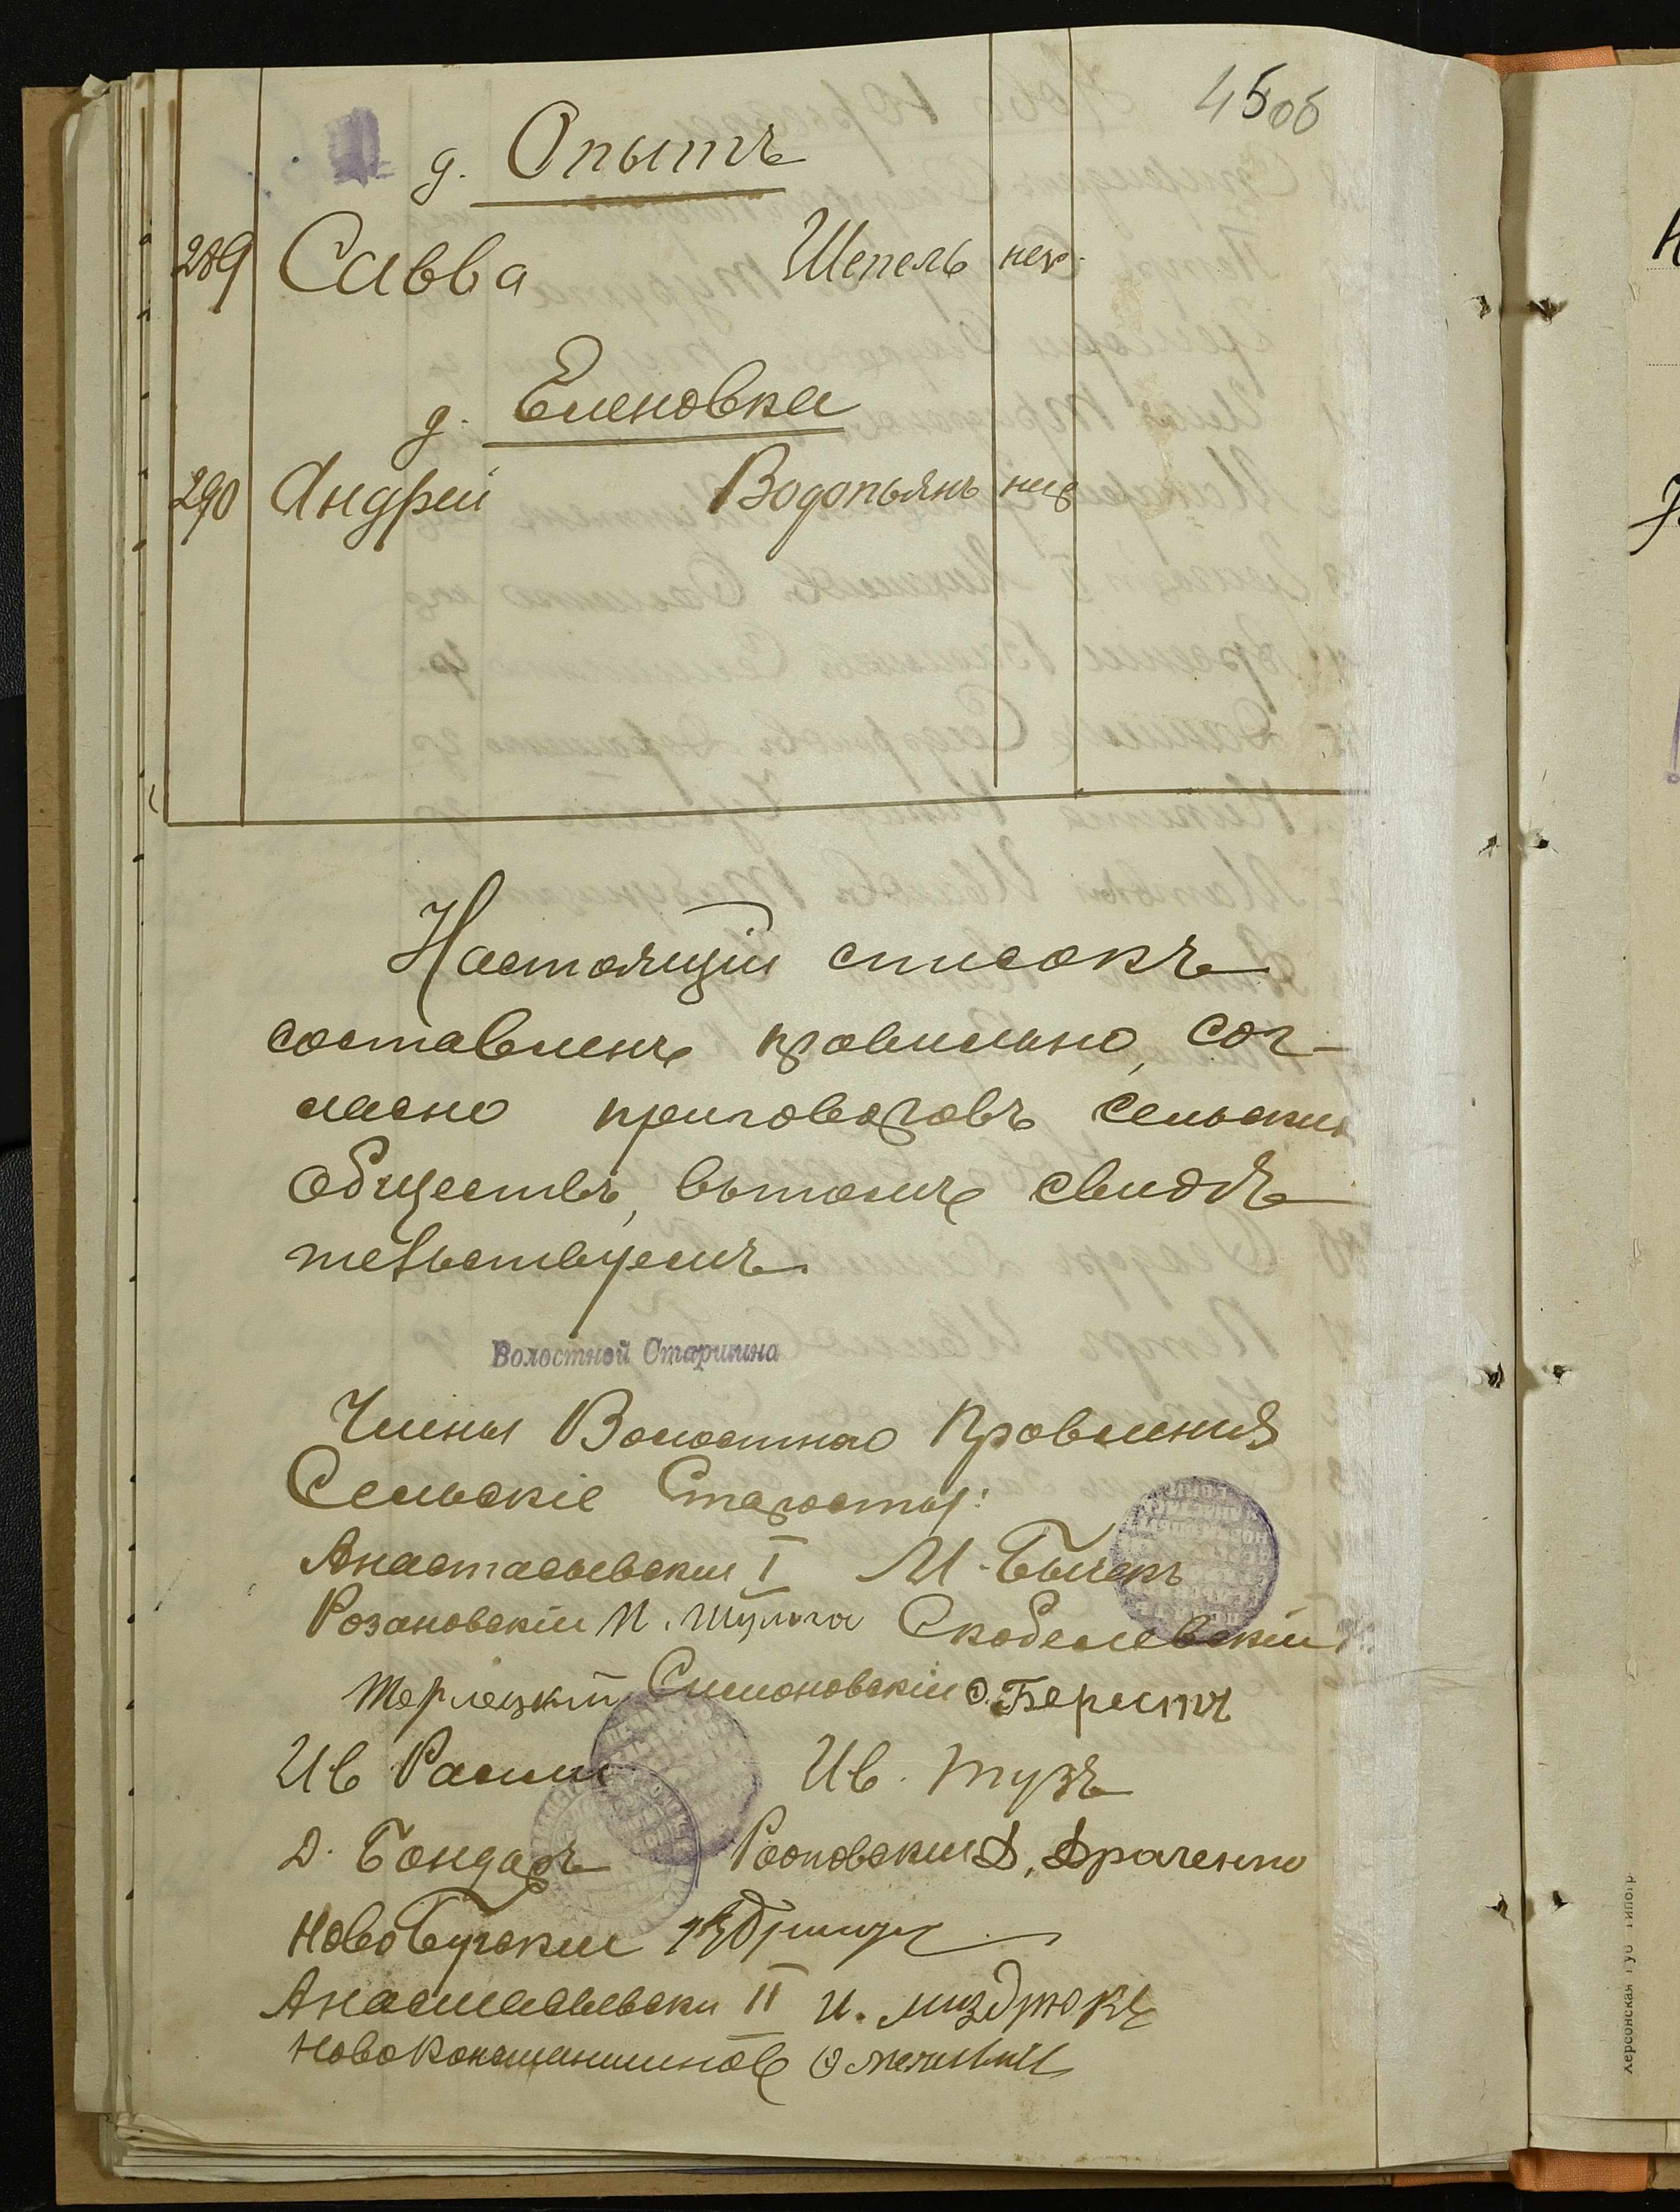 45об
д. Опытъ
289 Савва Шепель нег.
д. Еленовка
290 Андрей Водопьянъ нег
Настоящій списокъ
составленъ правильно, сог-
ласно приговоровъ сельских
обществъ, вътомъ свидѣ
тельствуемъ.
Волостной Старшина
Члены Волостнаго Правленія
Сельскіе Старосты:
Анастасьевскій I М. Бычекъ
Розановскій И. Шульга Скобелевскій
Терлецкій Симоновскій Ѳ. Берестъ
Ив Ив. Тузъ
Д. Бондарь Д. Драченко
НовоБугскій
Анастасьевскій II И. Миздрюкъ
НовоКонстантинов